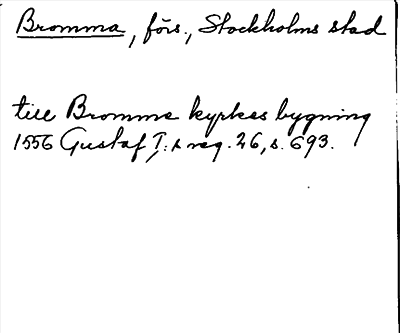 Bromma, förs., Stockholms stad
till Bromma kyrkas bygning
1556 Gustaf I:s reg. 26, s. 693.